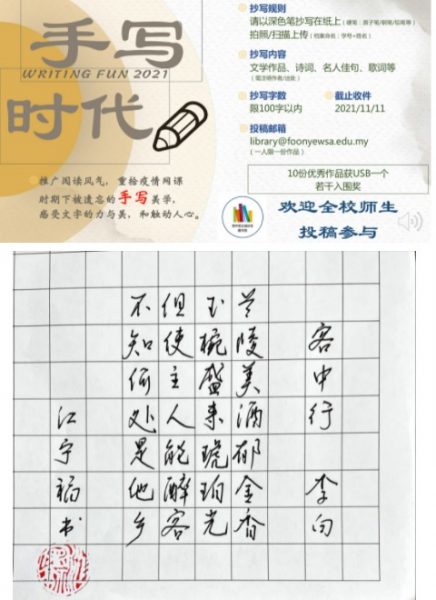 手写
WRITING FUN 2021
时代
推广阅读风气，重拾疫情网课
时期下被遗忘的手写美学，
感受文字的力与美，和触动人心。
抄写规则
请以深色笔抄写在纸上
拍照/扫描上传（档案命名：学号+姓名）
抄写内容
文学作品、诗词、名人佳句、歌词等
抄写字数
限100字以内
截止收件
2021/11/11
投稿邮箱
library@foonyewsa.edu.my
（一人限一份作品）
10份优秀作品获USB一个
若干入围奖
欢迎全校师生
投稿参与
客中行 李白
兰陵美酒郁金香
玉椀盛来琥珀光
但使主人能醉客
不知何处是他乡
江宇 书